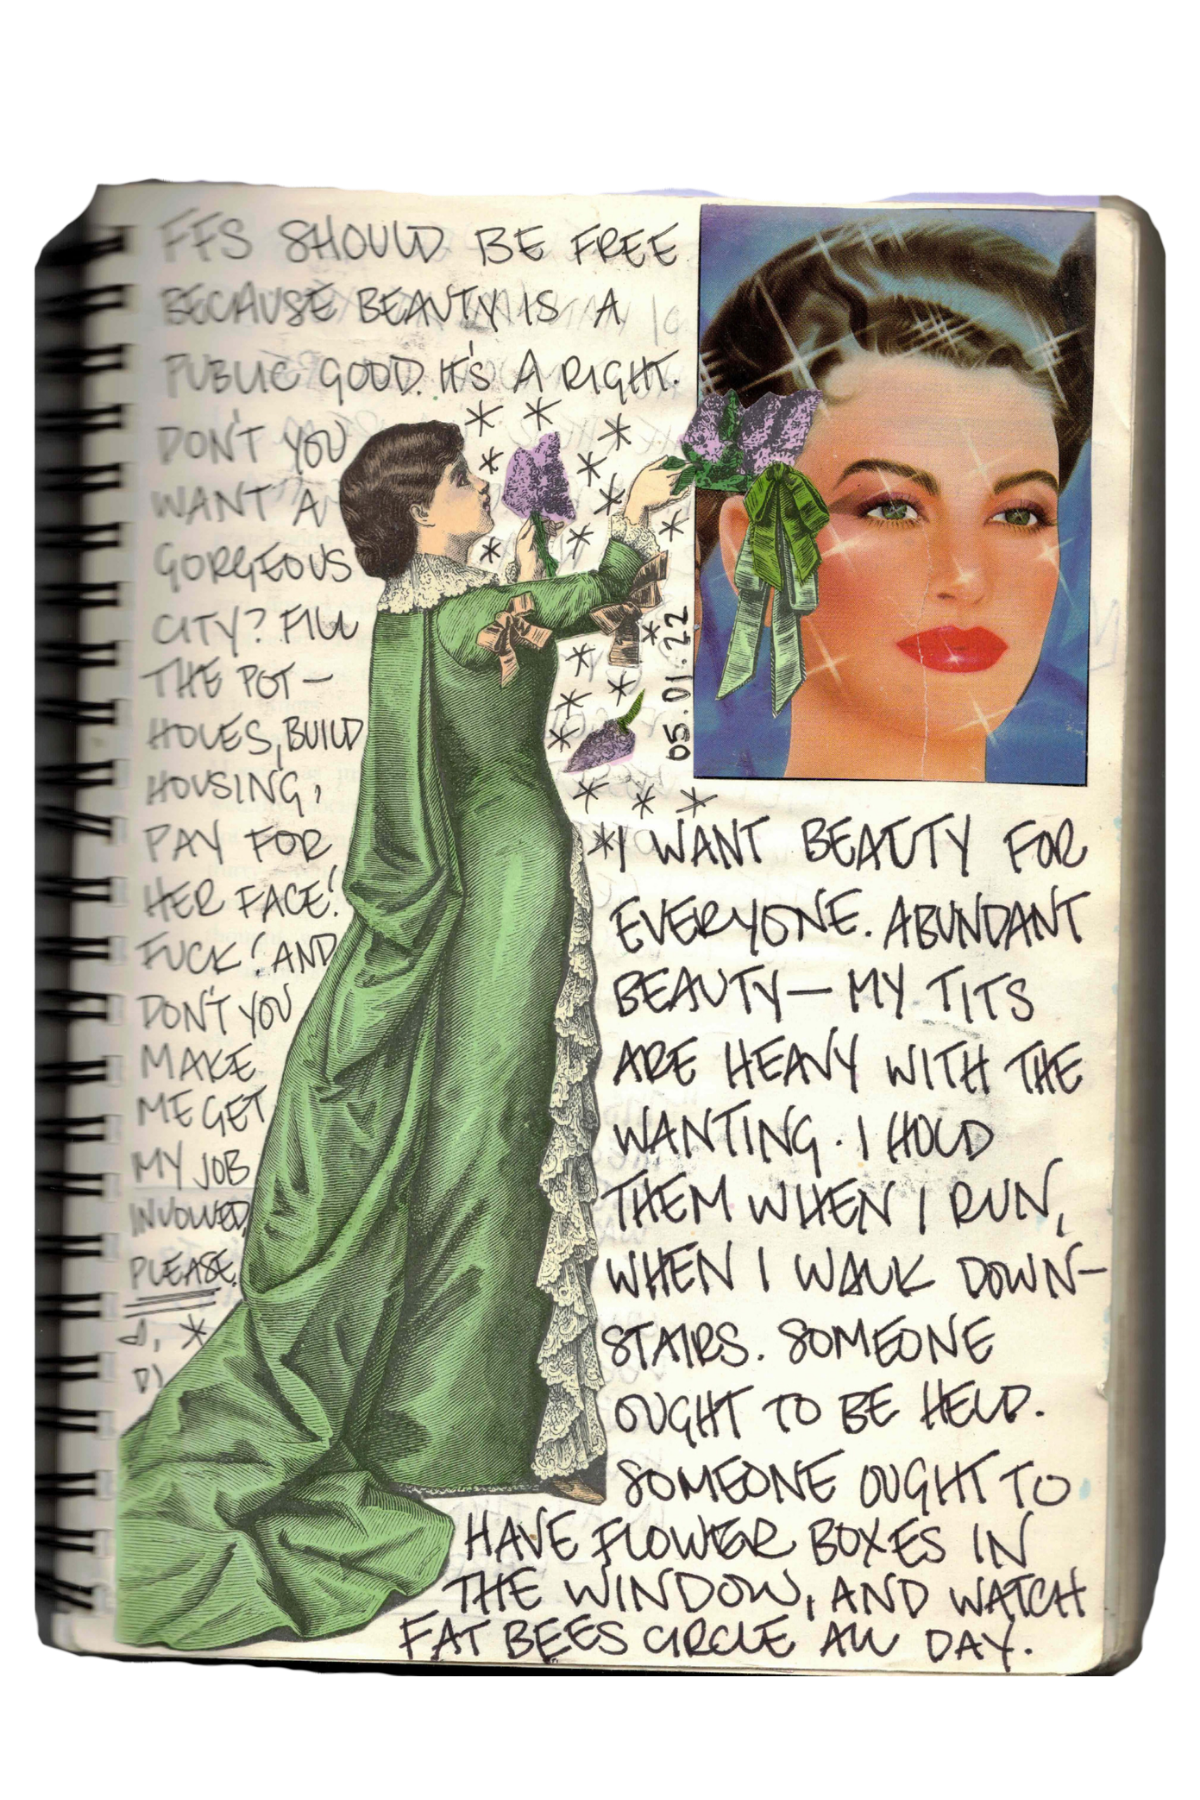 FFS SHOULD BE FREE
BECAUSE BEAUTY IS A
PUBLIC GOOD. IT'S A RIGHT.
DON'T YOU
WANT A
GORGEOUS
CITY? FILL
THE POT-
HOLES, BUILD
HOUSING,
PAY FOR
HER FACE!
FUCK! AND
DON'T YOU
MAKE
ME GET
MY JOB
INVOLVED,
PLEASE.
05.01.22
I WANT BEAUTY FOR
EVERYONE. ABUNDANT
BEAUTY— MY TITS
ARE HEAVY WITH THE
WANTING. I HOLD
THEM WHEN I RUN,
WHEN I WALK DOWN-
STAIRS. SOMEONE
OUGHT TO BE HELD.
SOMEONE OUGHT TO
HAVE FLOWER BOXES IN
THE WINDOW, AND WATCH
FAT BEES CIRCLE ALL DAY.